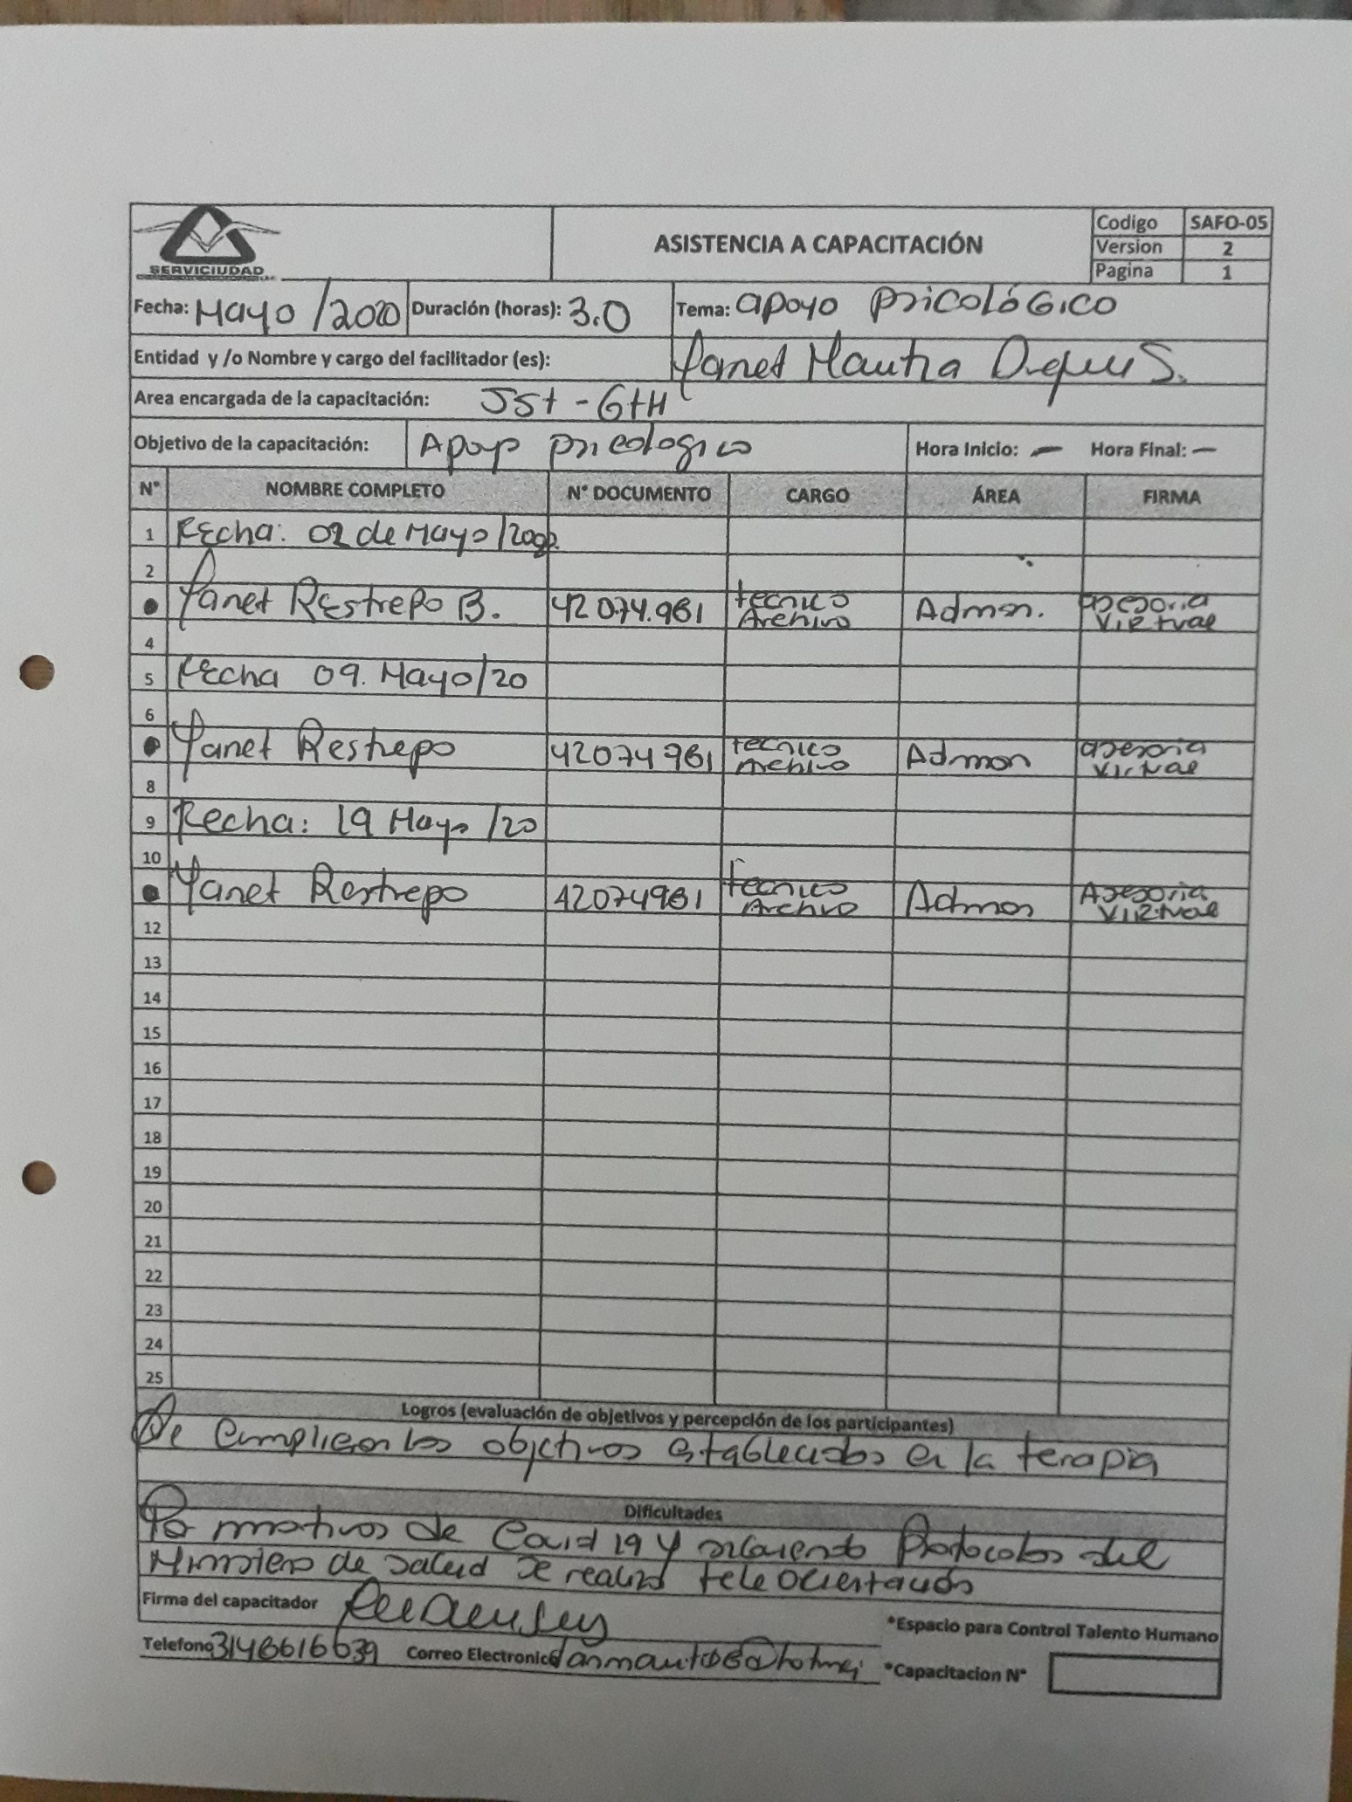 SERVICIUDAD
ASISTENCIA A CAPACITACIÓN
Codigo SAFO-05
Version 2
Pagina 1
Fecha: Mayo /2020 Duración (horas): 3.0 Tema: apoyo psicológico
Entidad y /o Nombre y cargo del facilitador (es): Yanet
Area encargada de la capacitación: SSt - GtH
Objetivo de la capacitación: Apoyo psicologico Hora Inicio: — Hora Final: —
N° NOMBRE COMPLETO N° DOCUMENTO CARGO ÁREA FIRMA
1 Fecha: 02 de Mayo /2020.
2
Yanet Restrepo B. 42074.961 tecnico Archivo Admon. asesoria Virtual
4
5 Fecha 09. Mayo/20
6
Yanet Restrepo 42074961 tecnico Archivo Admon asesoria Virtual
8
9 Fecha: 19 Mayo /20
10
Yanet Restrepo 42074961 Tecnico Archivo Admon Asesoria Virtual
12
13
14
15
16
17
18
19
20
21
22
23
24
25
Logros (evaluación de objetivos y percepción de los participantes)
Se cumplieron los objetivos establecidos en la terapia
Dificultades
Por motivos de Covid 19 y siguiendo Protocolos del
Ministerio de salud se realizó teleorientación
Firma del capacitador *Espacio para Control Talento Humano
Telefono 3146616639 Correo Electronico *Capacitacion N°